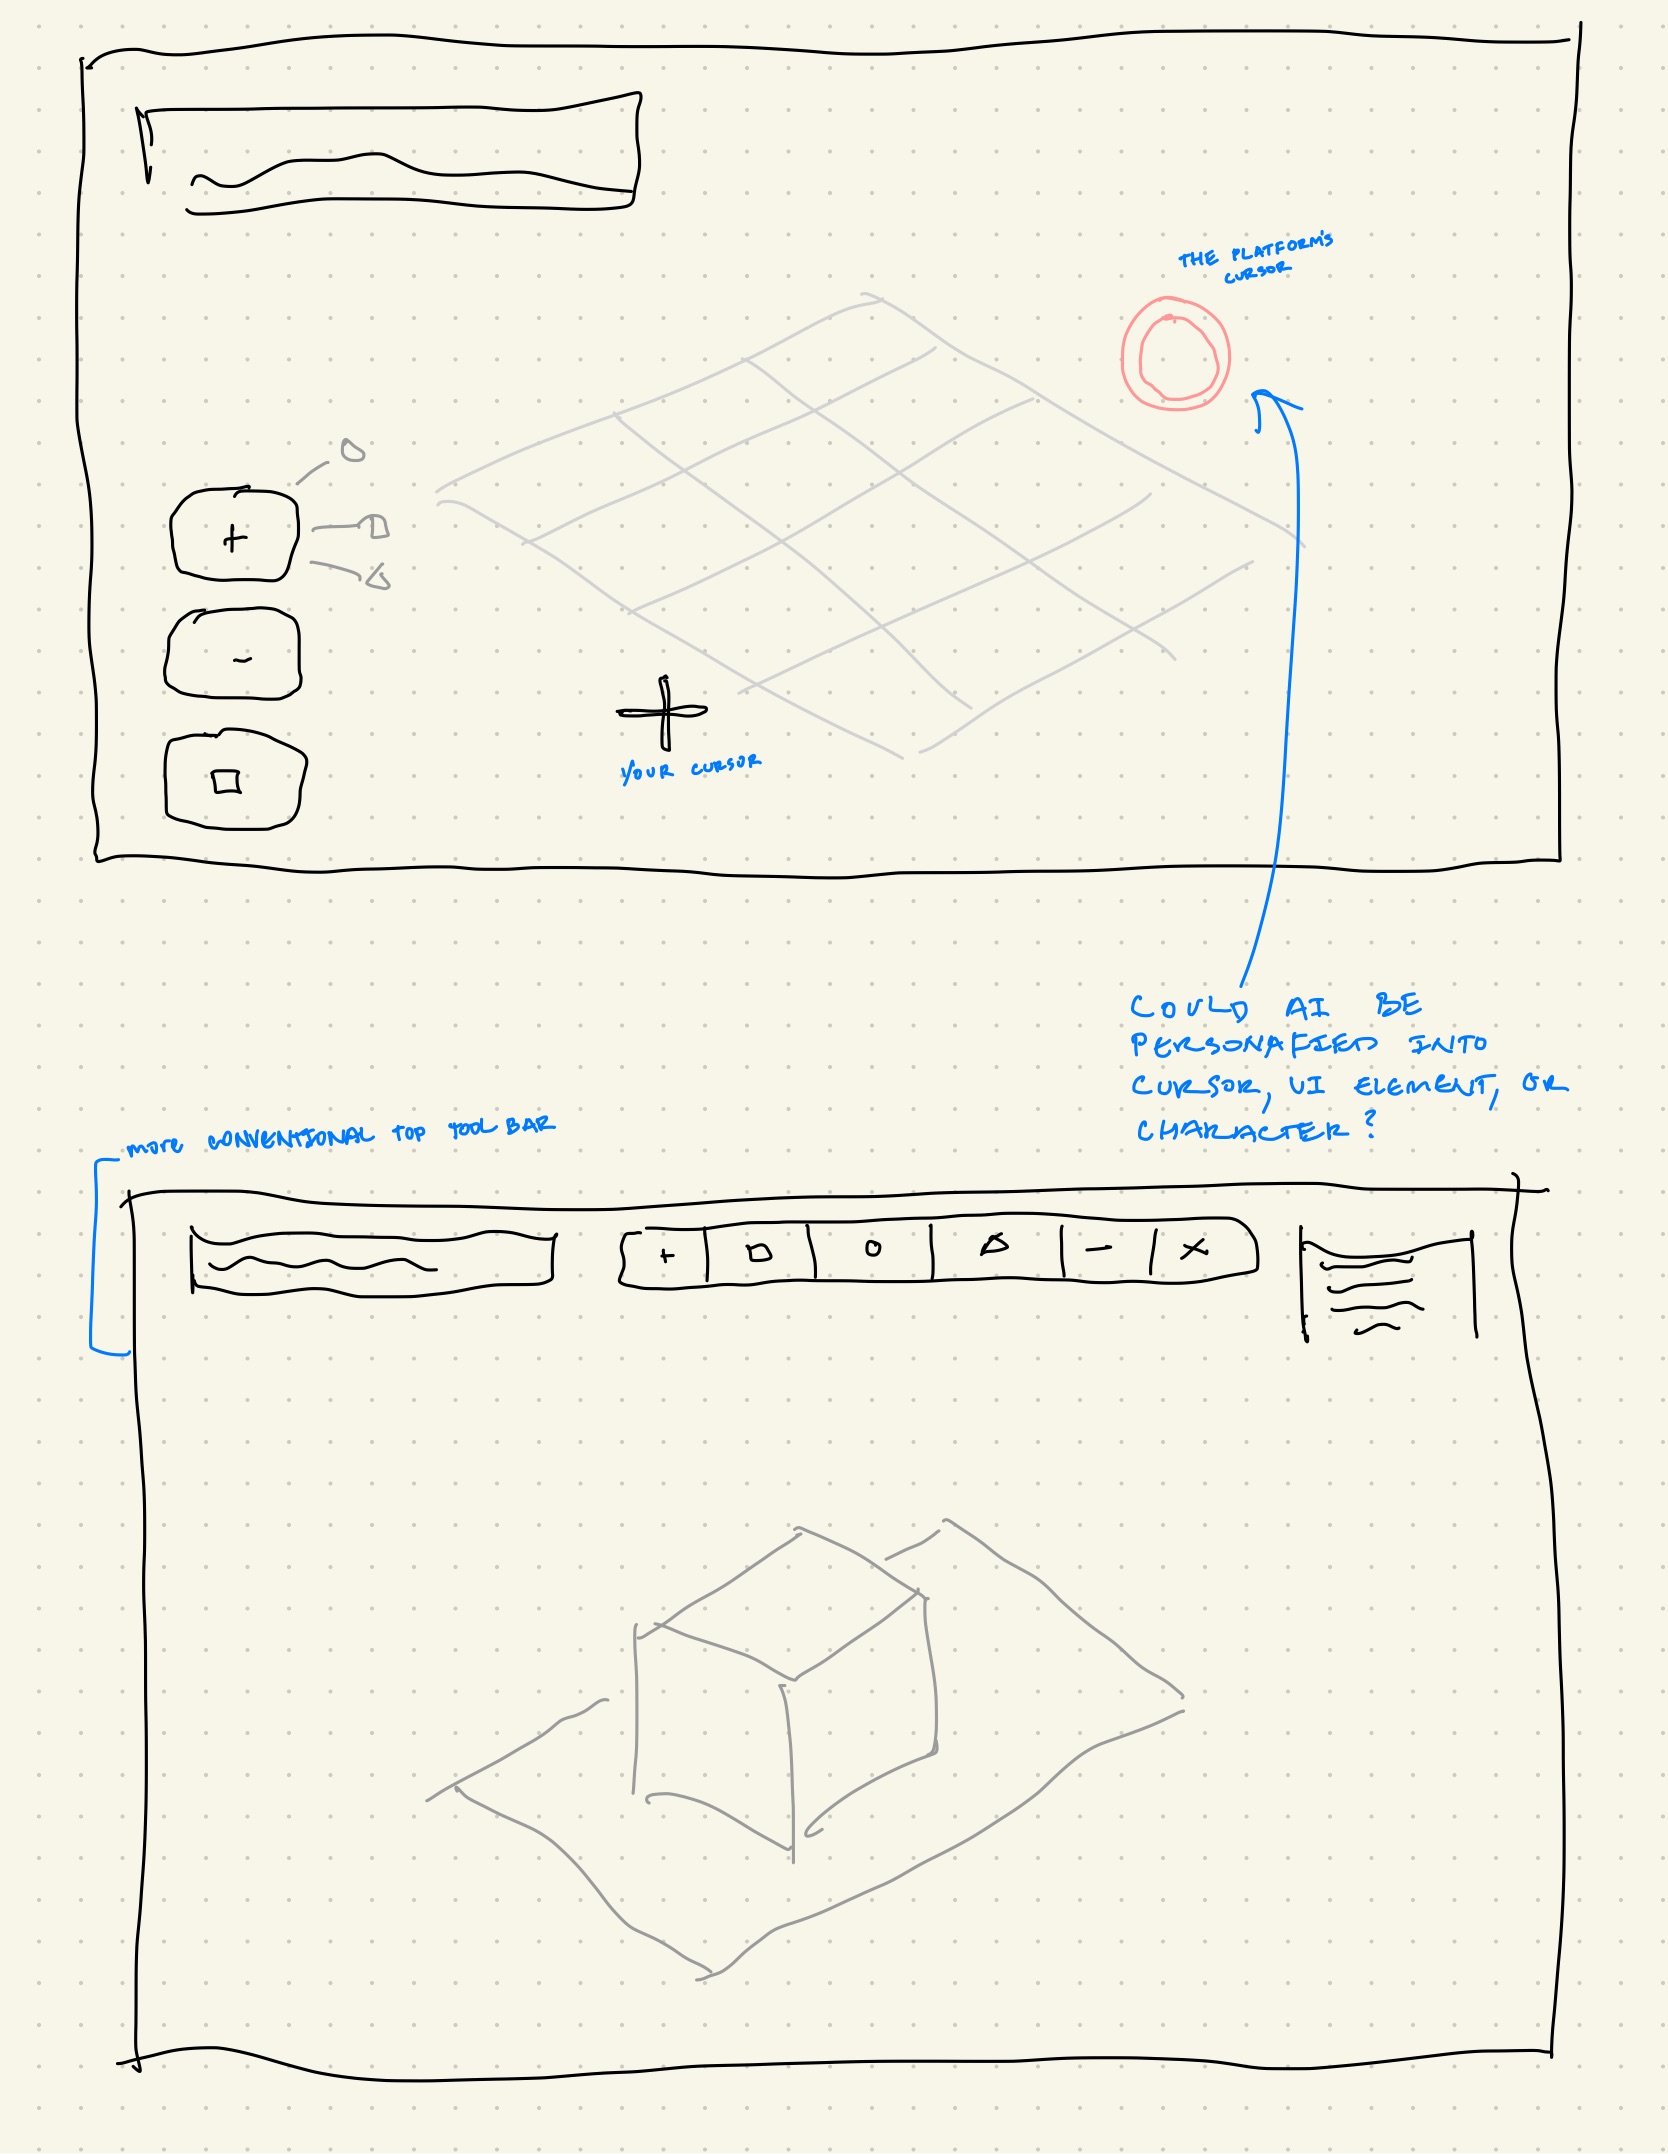 THE PLATFORM'S
CURSOR
+
-
YOUR CURSOR
COULD AI BE
PERSONAFIED INTO
CURSOR, UI ELEMENT, OR
CHARACTER?
more CONVENTIONAL TOP TOOL BAR